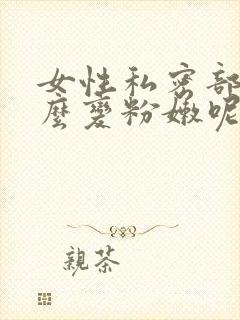 女性私密部
麼變粉嫩呢
親茶